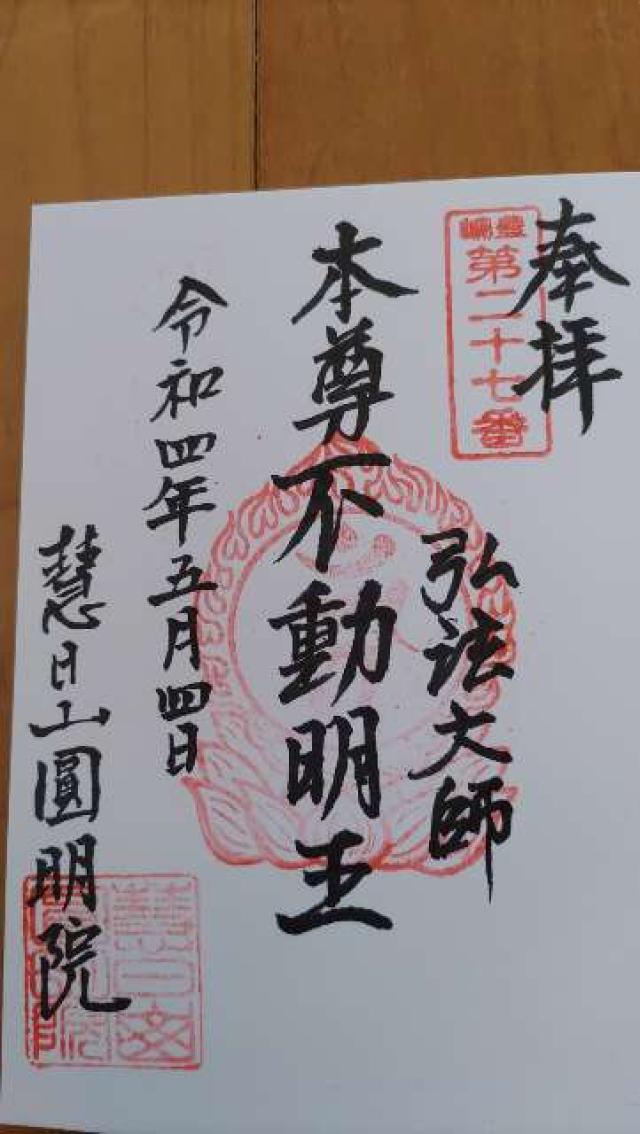 奉拝
第二十七番
弘法大師
本尊不動明王
令和四年五月四日
慧日山圓明院